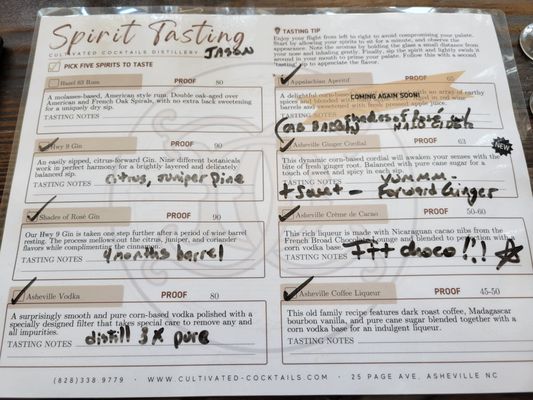 Spirit Tasting
CULTIVATED COCKTAILS DISTILLERY
JASON
PICK FIVE SPIRITS TO TASTE
TASTING TIP
Enjoy your flight from left to right to avoid compromising your palate.
Start by allowing your spirits to sit for a minute, and observe the
aroma. Note the aromas by holding the glass a small distance from
your nose and inhaling gently. Finally, sip the spirit and lightly swish it
around in your mouth to prime your palate. Follow this with a second
tasting sip to appreciate the flavor.
Hazel 63 Rum PROOF 80
A molasses-based, American style rum. Double oak-aged over
American and French Oak Spirals, with no extra back sweetening
for a uniquely dry sip.
TASTING NOTES
Hwy 9 Gin PROOF 90
An easily sipped, citrus-forward Gin. Nine different botanicals
work in perfect harmony for a brightly layered and delicately
balanced sip.
TASTING NOTES citrus, juniper pine
Shades of Rosé Gin PROOF 90
Our Hwy 9 Gin is taken one step further after a period of wine barrel
resting. The process mellows out the citrus, juniper, and coriander
flavors while complimenting the cinnamon.
TASTING NOTES 4 months barrel
Asheville Vodka PROOF 80
A surprisingly smooth and pure corn-based vodka polished with a
specially designed filter that takes special care to remove any and
all impurities.
TASTING NOTES distill 3x pure
Appalachian Aperitif PROOF 65
A delightful
an array of earthy
spices and blended
in red wine
barrels and sweetened with fresh pressed apple juice.
COMING AGAIN SOON!
TASTING NOTES shades of Rosé w/
Asheville Ginger Cordial PROOF 63
NEW
This dynamic corn-based cordial will awaken your senses with the
bite of fresh ginger root. Balanced with pure cane sugar for a
touch of sweet and spicy in each sip.
TASTING NOTES yummm -
+ sweet - Forward Ginger
Asheville Crème de Cacao PROOF 50-60
This rich liqueur is made with Nicaraguan cacao nibs from the
French Broad Chocolate lounge and blended to perfection with a
corn vodka base.
TASTING NOTES +++ choco !!!
Asheville Coffee Liqueur PROOF 45-50
This old family recipe features dark roast coffee, Madagascar
bourbon vanilla, and pure cane sugar blended together with a
corn vodka base for an indulgent liqueur.
TASTING NOTES
(828)338.9779 · WWW.CULTIVATED-COCKTAILS.COM · 25 PAGE AVE, ASHEVILLE NC